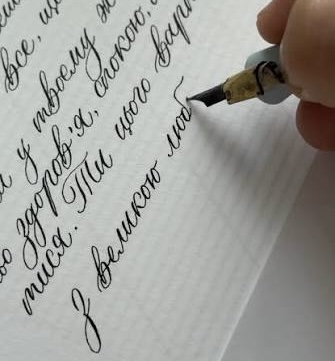 все, що
у твоєму ж
здоров'я, спокою,
тися. Ти цього варт
З великою люб